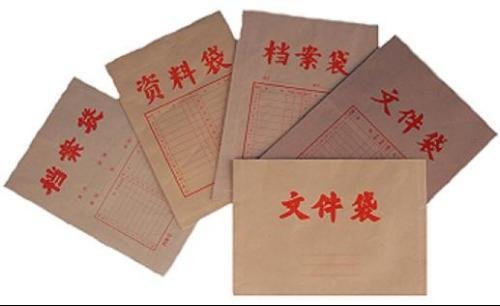 档案袋
资料袋
档案袋
文件袋
文件袋